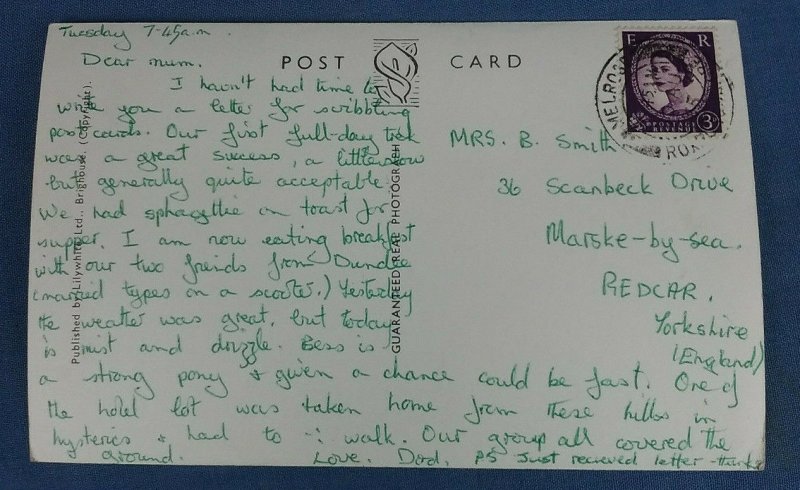 Tuesday 7-45a.m.
Dear mum.
I havn't had time to
write you a letter for scribbling
post cards. Our first full-day trek
was a great success, a little slow
but generally quite acceptable.
We had sphagettie on toast for
supper. I am now eating breakfast
with our two friends from Dundee
(married types on a scooter.) Yesterday
the weather was great, but today
is mist and drizzle. Bess is
a strong pony & given a chance could be fast. One of
the hotel lot was taken home from these hills in
hysterics & had to walk. Our group all covered the
ground. Love. Dord. PS Just recieved letter - thanks
POST CARD
Published by Lilywhite Ltd., Brighouse. (Copyright).
GUARANTEED REAL PHOTOGRAPH
E R
POSTAGE
REVENUE
3D
MELROSE
ROX
MRS. B. Smith
36 Scanbeck Drive
Marske-by-sea.
REDCAR.
Yorkshire
(England)